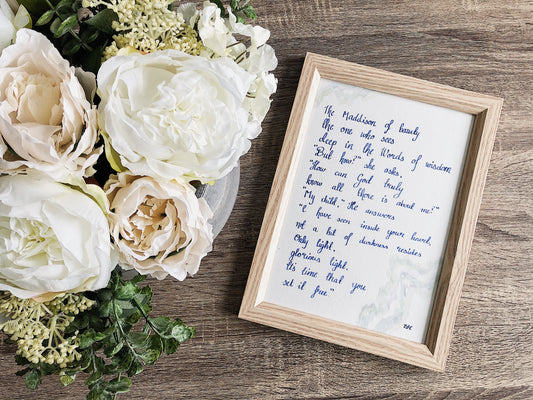 The Maddison of beauty
the one who sees
deep in the Words of wisdom
"But how?" she asks,
"How can God truly
know all there is about me?"
"My child," He answers
"I have seen inside your heart,
not a bit of darkness resides
Only light,
glorious light,
Its time that you
set it free"